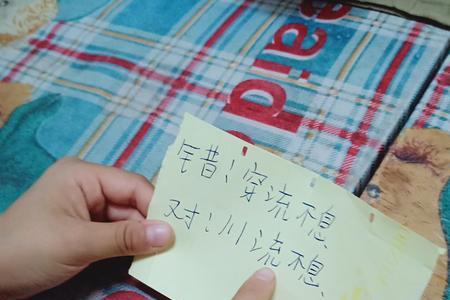 错：穿流不息
对：川流不息